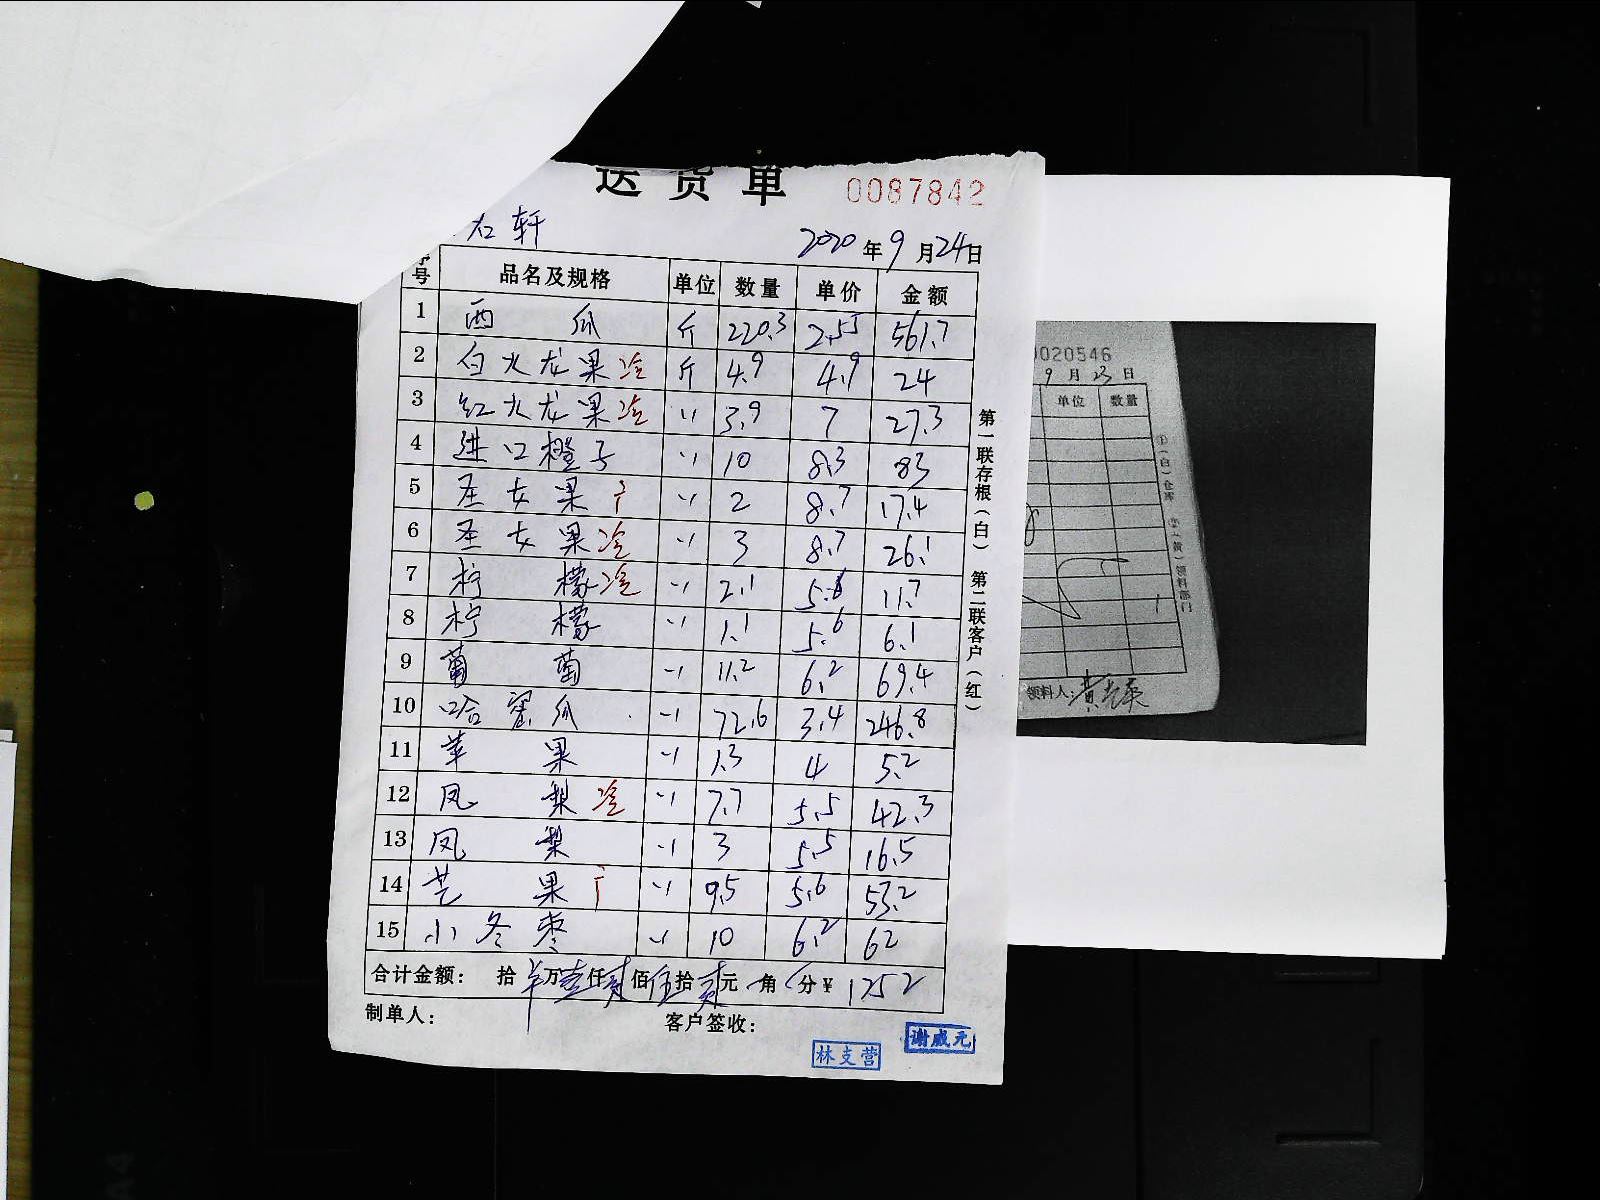 送货单 0087842
右轩
2020年9月24日
序号 品名及规格 单位 数量 单价 金额
1 西瓜 斤 220.3 2.55 561.7
2 白火龙果冷 斤 4.9 4.9 24
3 红火龙果冷 〃 3.9 7 27.3
4 进口橙子 〃 10 8.3 83
5 圣女果 〃 2 8.7 17.4
6 圣女果冷 〃 3 8.7 26.1
7 柠檬冷 〃 2.1 5.6 11.7
8 柠檬 〃 1.1 5.6 6.1
9 葡萄 〃 11.2 6.2 69.4
10 哈密瓜 〃 72.6 3.4 246.8
11 苹果 〃 1.3 4 5.2
12 凤梨冷 〃 7.7 5.5 42.3
13 凤梨 〃 3 5.5 16.5
14 芒果 〃 9.5 5.6 53.2
15 小冬枣 〃 10 6.2 62
合计金额: 拾 万壹仟贰佰伍拾贰元 角 分¥ 1252
制单人: 客户签收:
林支营 谢成元
第一联存根(白) 第二联客户(红)
0020546
9月23日
单位 数量
(白)仓库 (黄)领料部门
领料人: